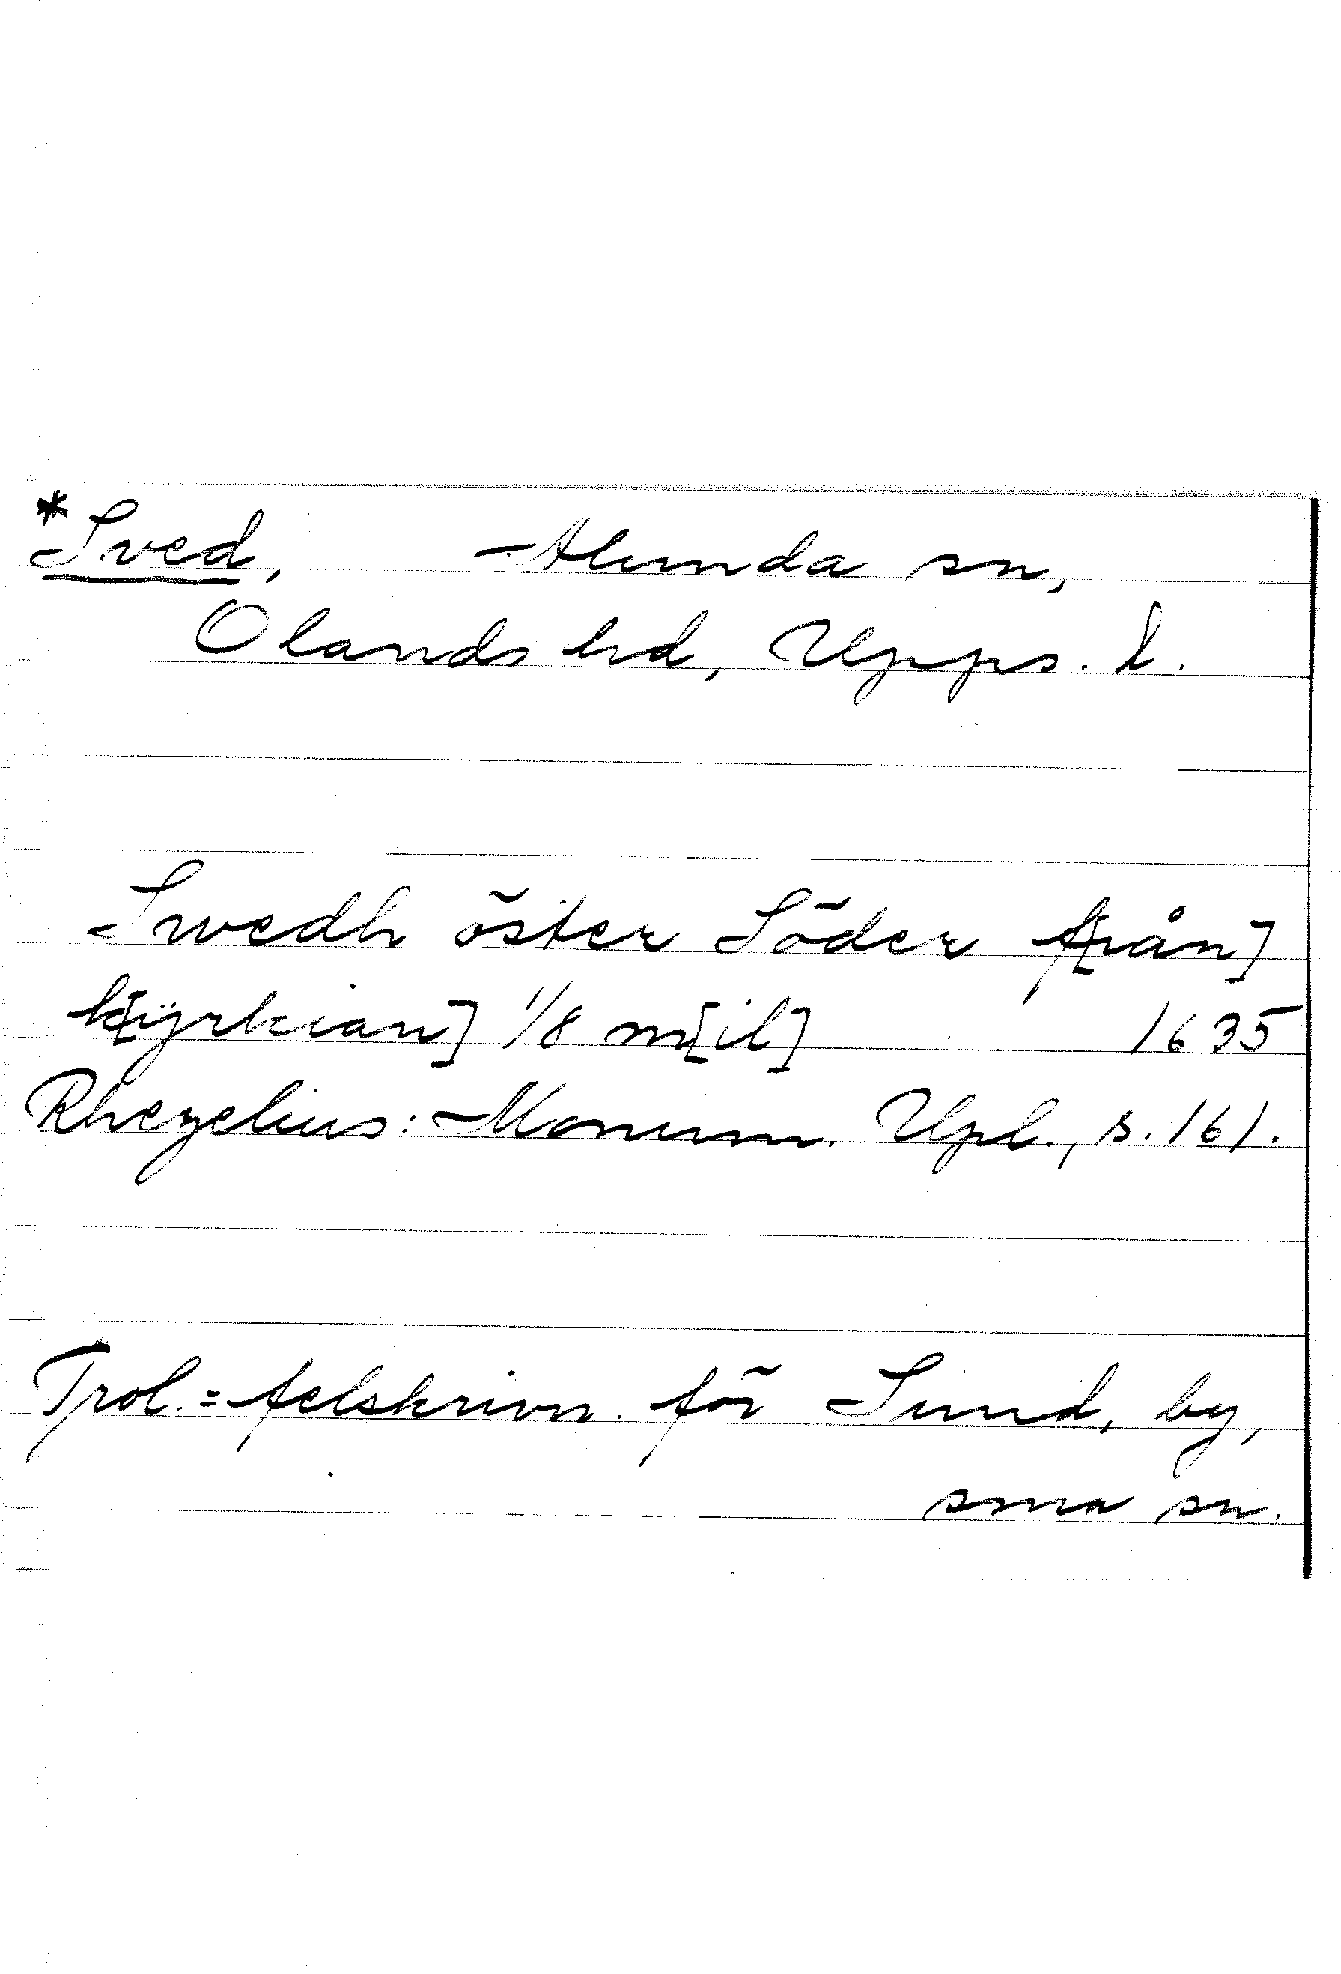 *Sved, Alunda sn,
Olands hd, Upps. l.
Swedh öster Söder f[rån]
k[yrkian] 1/8 m[il] 1635
Rhezelius: Monum. Upl., s. 161.
Trol. = felskrivn. för Sund, by,
sma sn.